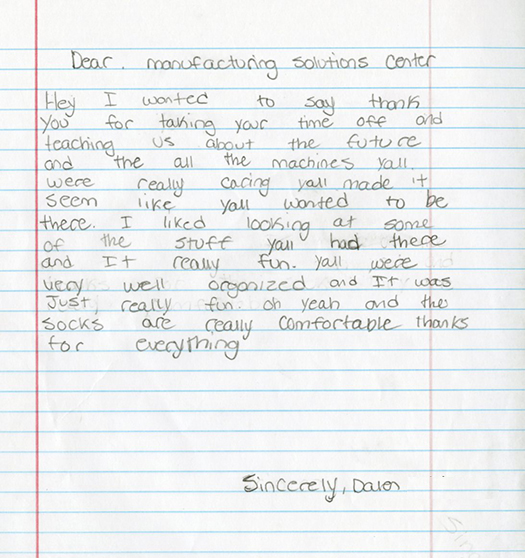 Dear. manufacturing solutions center
Hey I wanted to say thank
you for taking your time off and
teaching us about the future
and the all the machines yall
were really caring yall made it
seem like yall wanted to be
there. I liked looking at some
of the stuff yall had there
and It really fun. yall were
very well organized and It was
Just really fun. oh yeah and the
socks are really comfortable thanks
for everything
Sincerely,